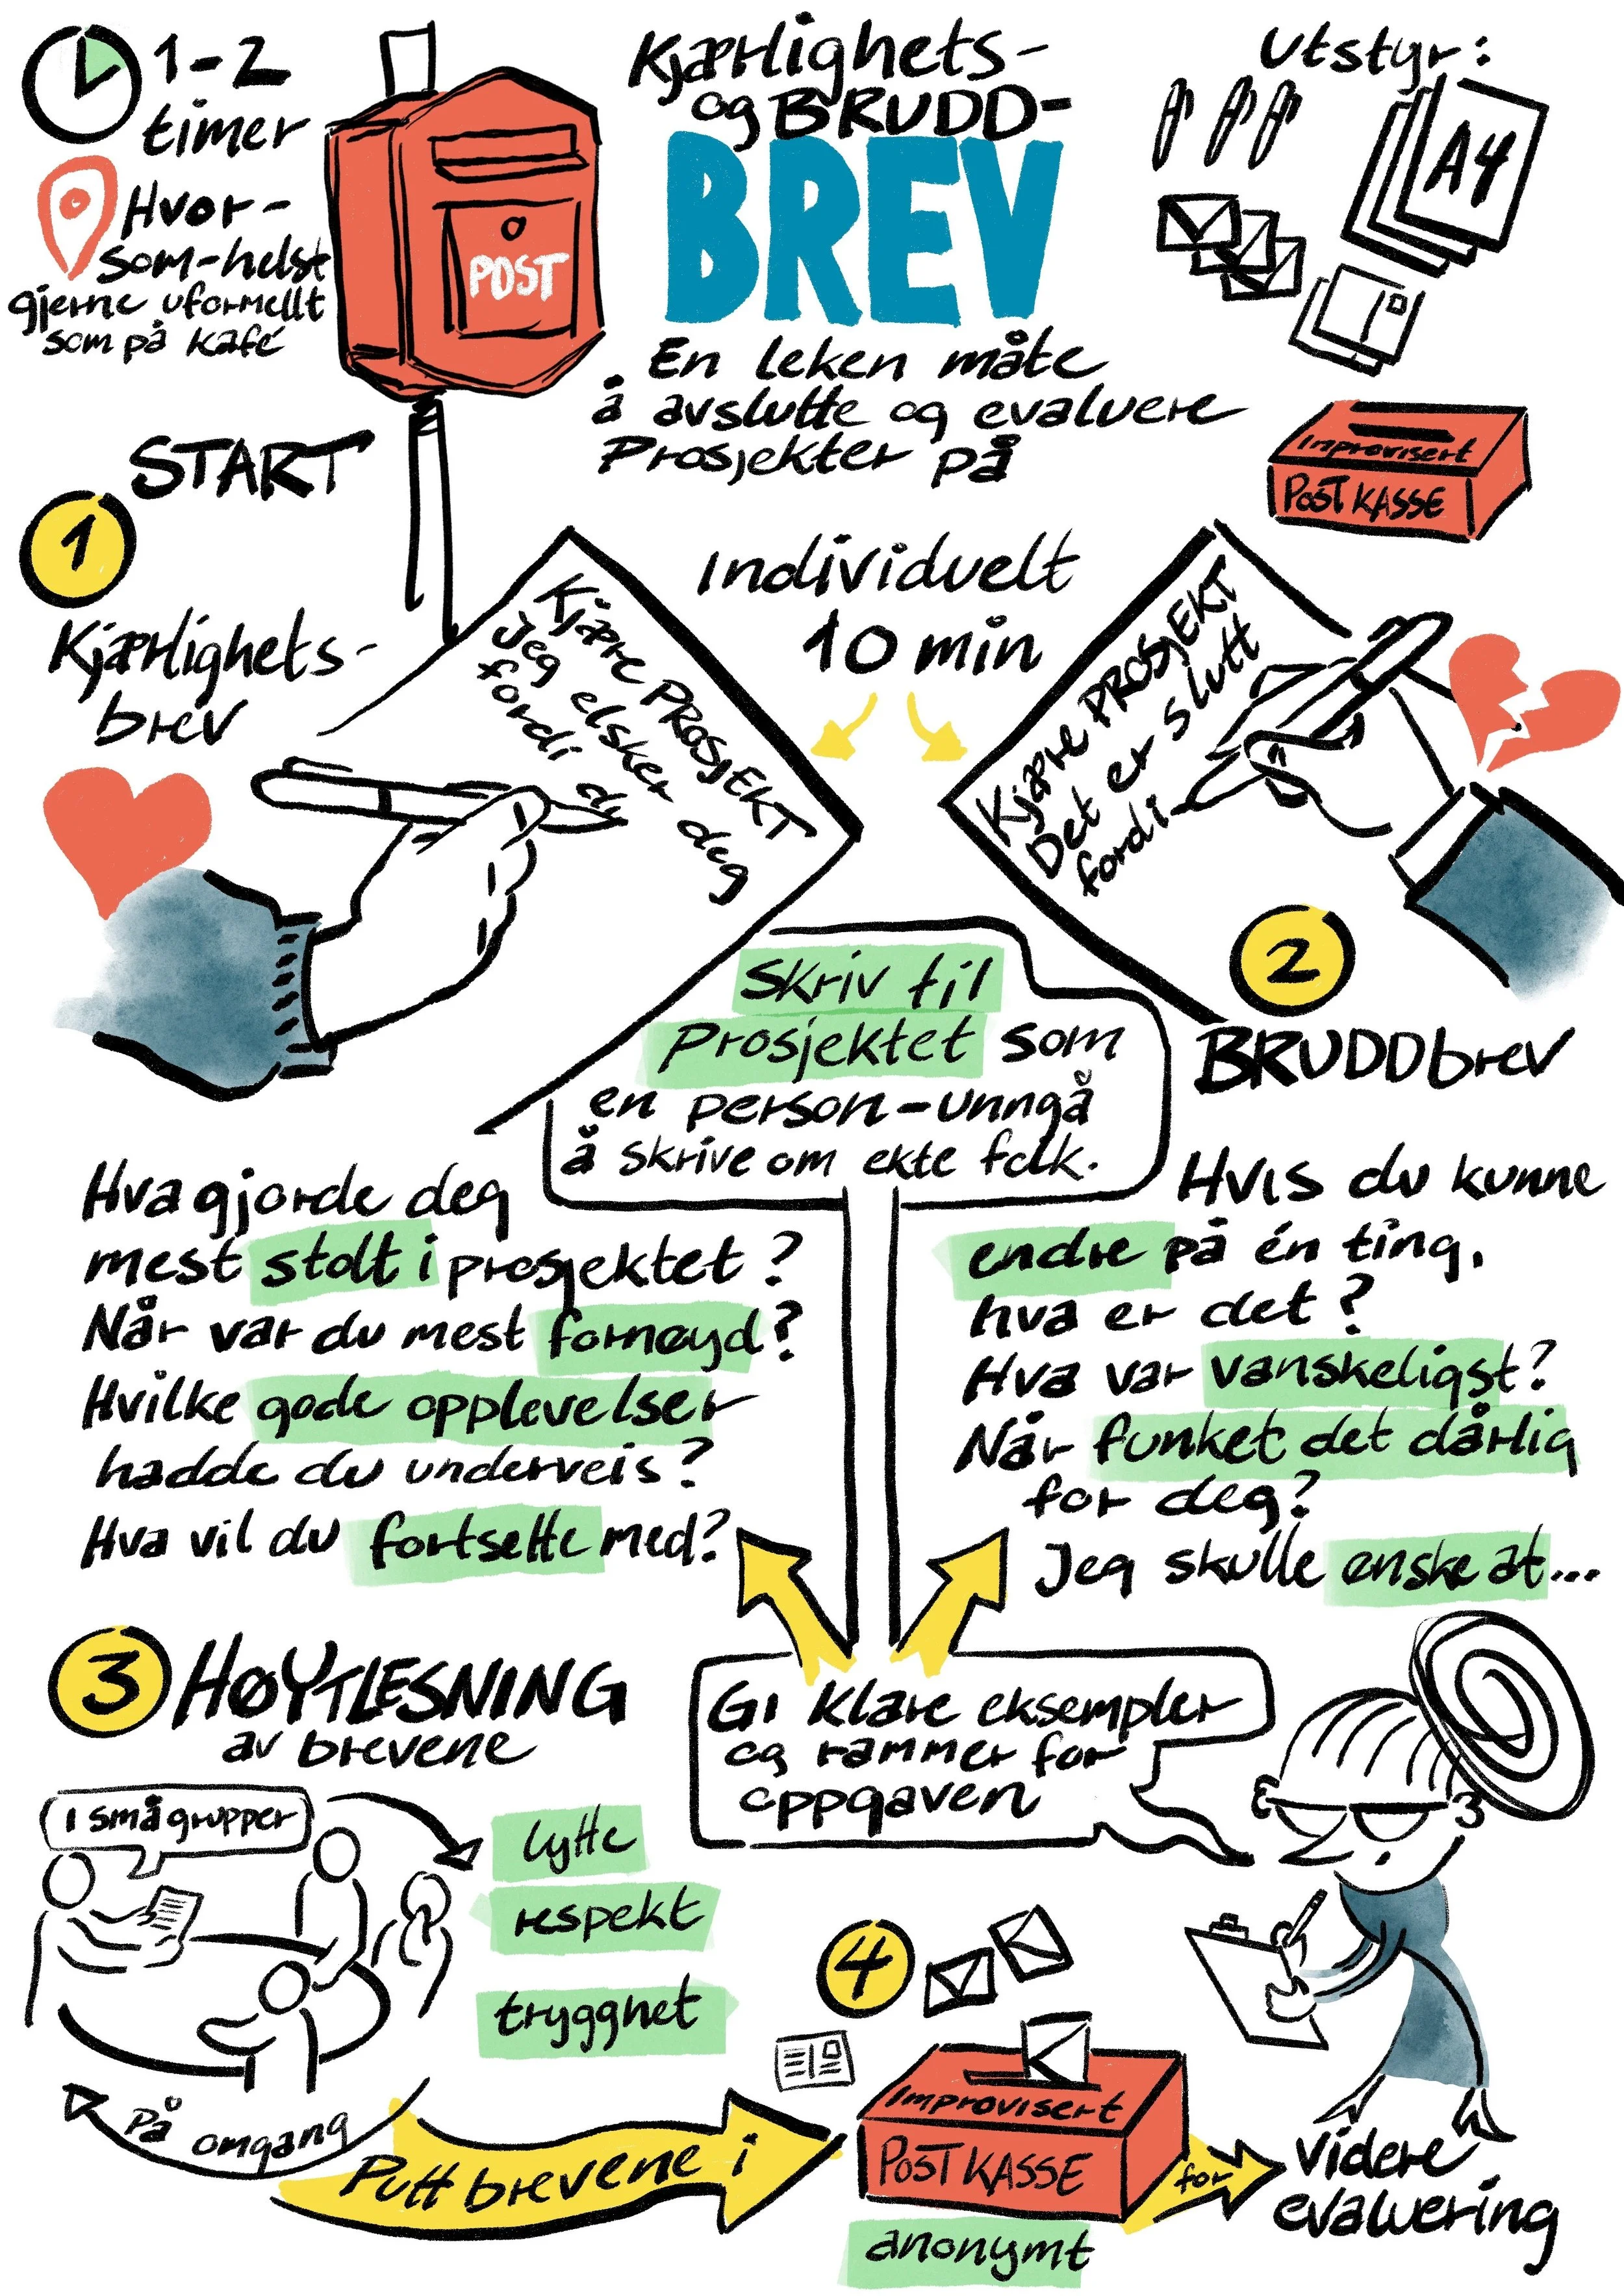 1-2
timer
Hvor-
som-helst
gjerne uformellt
som på kafé
POST
Kjærlighets-
og BRUDD-
BREV
En leken måte
å avslutte og evaluere
Prosjekter på
Utstyr:
A4
Improvisert
POSTKASSE
START
1
Kjærlighets-
brev
Kjære PROSJEKT
Jeg elsker deg
fordi du
Individuelt
10 min
Kjære PROSJEKT
Det er slutt
fordi
2
BRUDDbrev
Skriv til
Prosjektet som
en person-unngå
å skrive om ekte folk.
Hva gjorde deg
mest stolt i prosjektet?
Når var du mest fornøyd?
Hvilke gode opplevelser
hadde du underveis?
Hva vil du fortsette med?
Hvis du kunne
endre på én ting,
hva er det?
Hva var vanskeligst?
Når funket det dårlig
for deg?
Jeg skulle ønske at...
Gi klare eksempler
og rammer for
oppgaven
3 HØYTLESNING
av brevene
I små grupper
lytte
respekt
trygghet
På omgang
Putt brevene i
4
Improvisert
POSTKASSE
anonymt
for
videre
evaluering